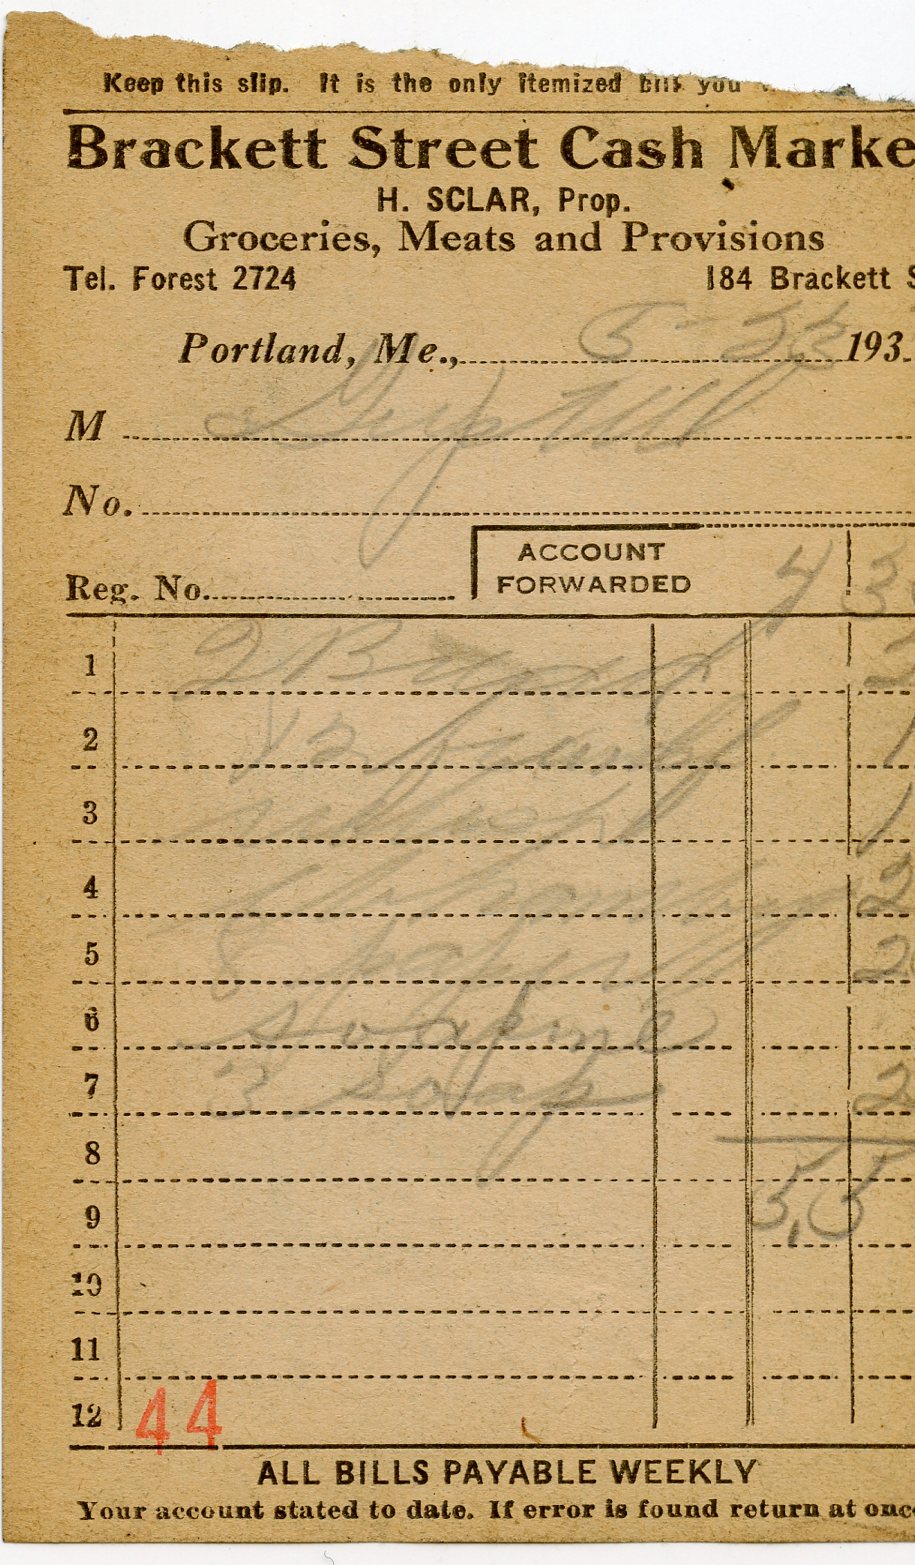 Keep this slip. It is the only itemized bill you
Brackett Street Cash Marke
H. SCLAR, Prop.
Groceries, Meats and Provisions
Tel. Forest 2724 184 Brackett S
Portland, Me., 5 - 33 193
M Guptill
No.
Reg. No. ACCOUNT FORWARDED 4 3
1 2
2 1
3 1
4 2
5 2
6
7 3 Soap 2
8
9 5,5
10
11
12 44
ALL BILLS PAYABLE WEEKLY
Your account stated to date. If error is found return at once